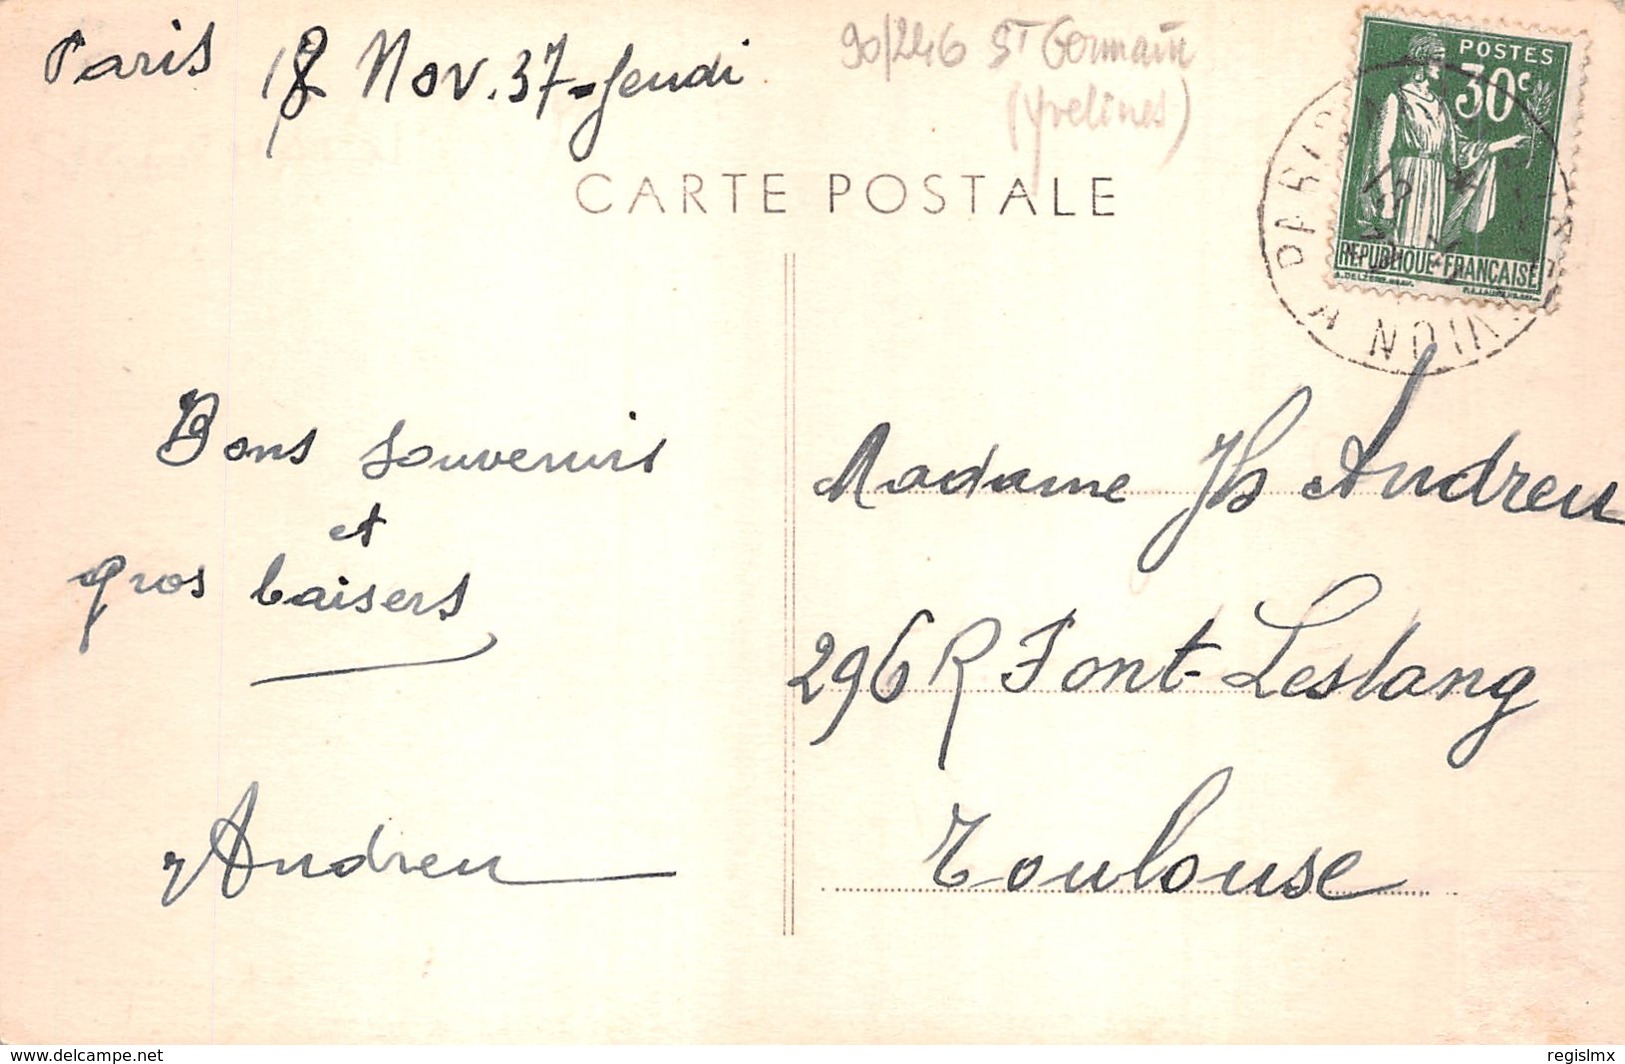 Paris 18 Nov. 37 - Jeudi
90/246 St Germain
(Yvelines)
POSTES
30c
REPUBLIQUE FRANCAISE
PARIS
CARTE POSTALE
Bons souvenirs
et
gros baisers
Andreu
Madame Jh Andreu
296 R Font-Leslang
Toulouse
www.delcampe.net
regislmx